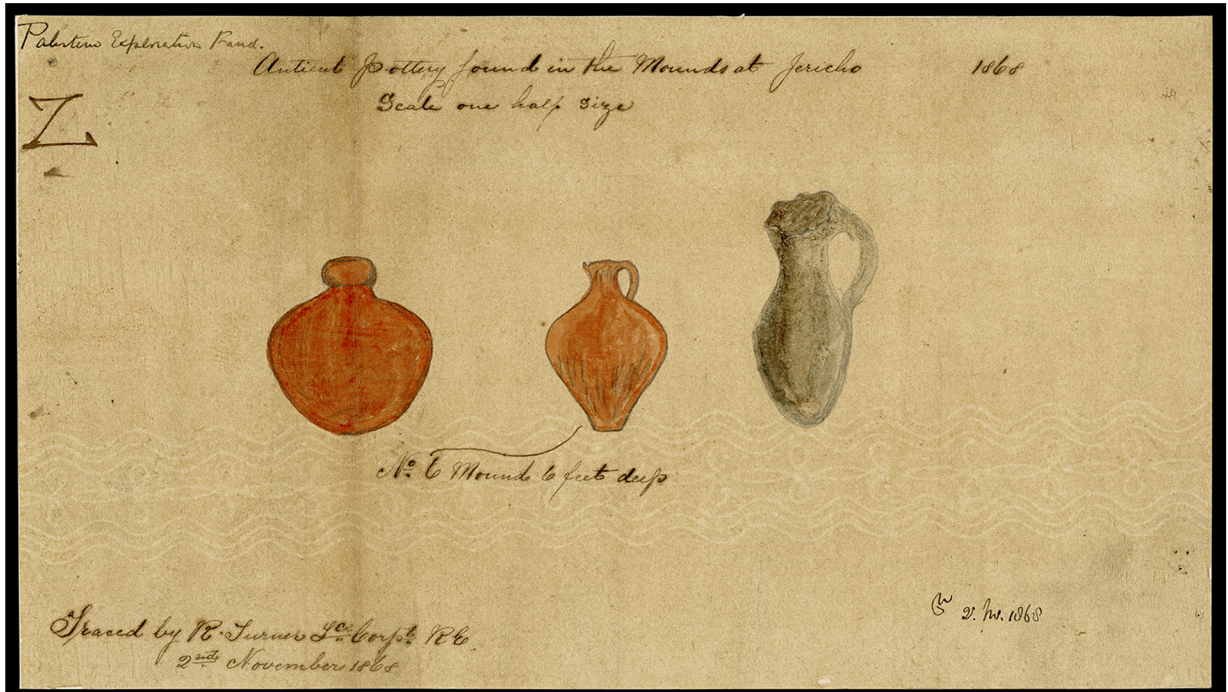 Palestine Exploration Fund.
Antient Pottery found in the Mounds at Jericho 1868
Scale one half size
Z
No. 6 Mound 6 feet deep
Traced by R. Turner Lce. Corpl. R.E.
2nd November 1868
2. 1868